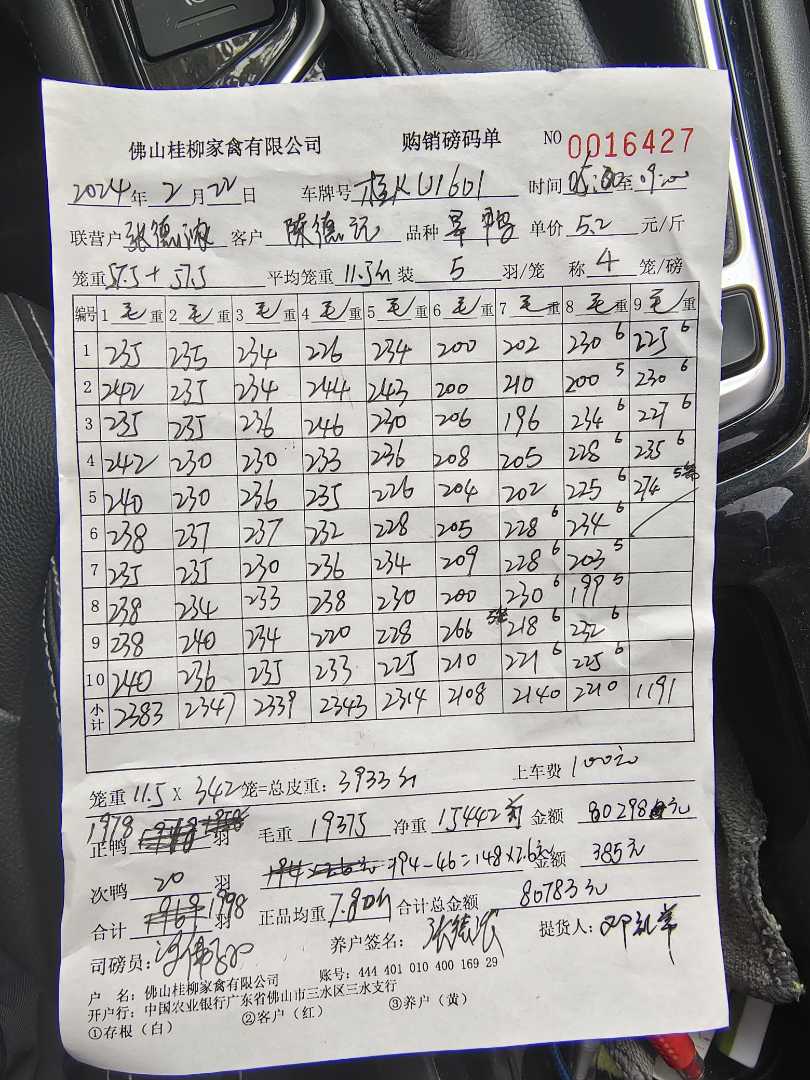 佛山桂柳家禽有限公司 购销磅码单 NO 0016427
2024年2月22日 车牌号 桂KU1601 时间05:00至09:00
联营户 张德 客户 陈德记 品种 鸭 单价 5.2 元/斤
笼重57.5+57.5 平均笼重 11.5斤 装 5 羽/笼 称 4 笼/磅
编号 1毛重 2毛重 3毛重 4毛重 5毛重 6毛重 7毛重 8毛重 9毛重
1 235 235 234 226 234 200 202 230 6 225 6
2 242 235 234 244 243 200 210 200 5 230 6
3 235 235 236 246 230 206 196 234 6 227 6
4 242 230 230 233 236 208 205 228 6 235 6
5 240 230 236 235 226 204 202 225 6 274 5笼
6 238 237 237 232 228 205 228 6 234 6
7 235 235 230 236 234 209 228 6 203 5
8 238 234 233 238 230 200 230 6 199 5
9 238 240 234 220 228 266 5笼 218 6 232 6
10 240 236 235 233 225 210 221 6 225 6
小计 2383 2347 2339 2343 2314 2108 2140 2210 1191
笼重 11.5 X 342 笼=总皮重: 3933斤 上车费 100元
正鸭 1978 羽 毛重 19375 净重 15442斤 金额 80298元
次鸭 20 羽 194-46=148×2.6元 金额 385元
合计 1998 羽 正品均重 7.80斤 合计总金额 80783元
司磅员: 养户签名: 张德 提货人: 邓
户 名: 佛山桂柳家禽有限公司 账号: 444 401 010 400 169 29
开户行: 中国农业银行广东省佛山市三水区三水支行
①存根（白） ②客户（红） ③养户（黄）